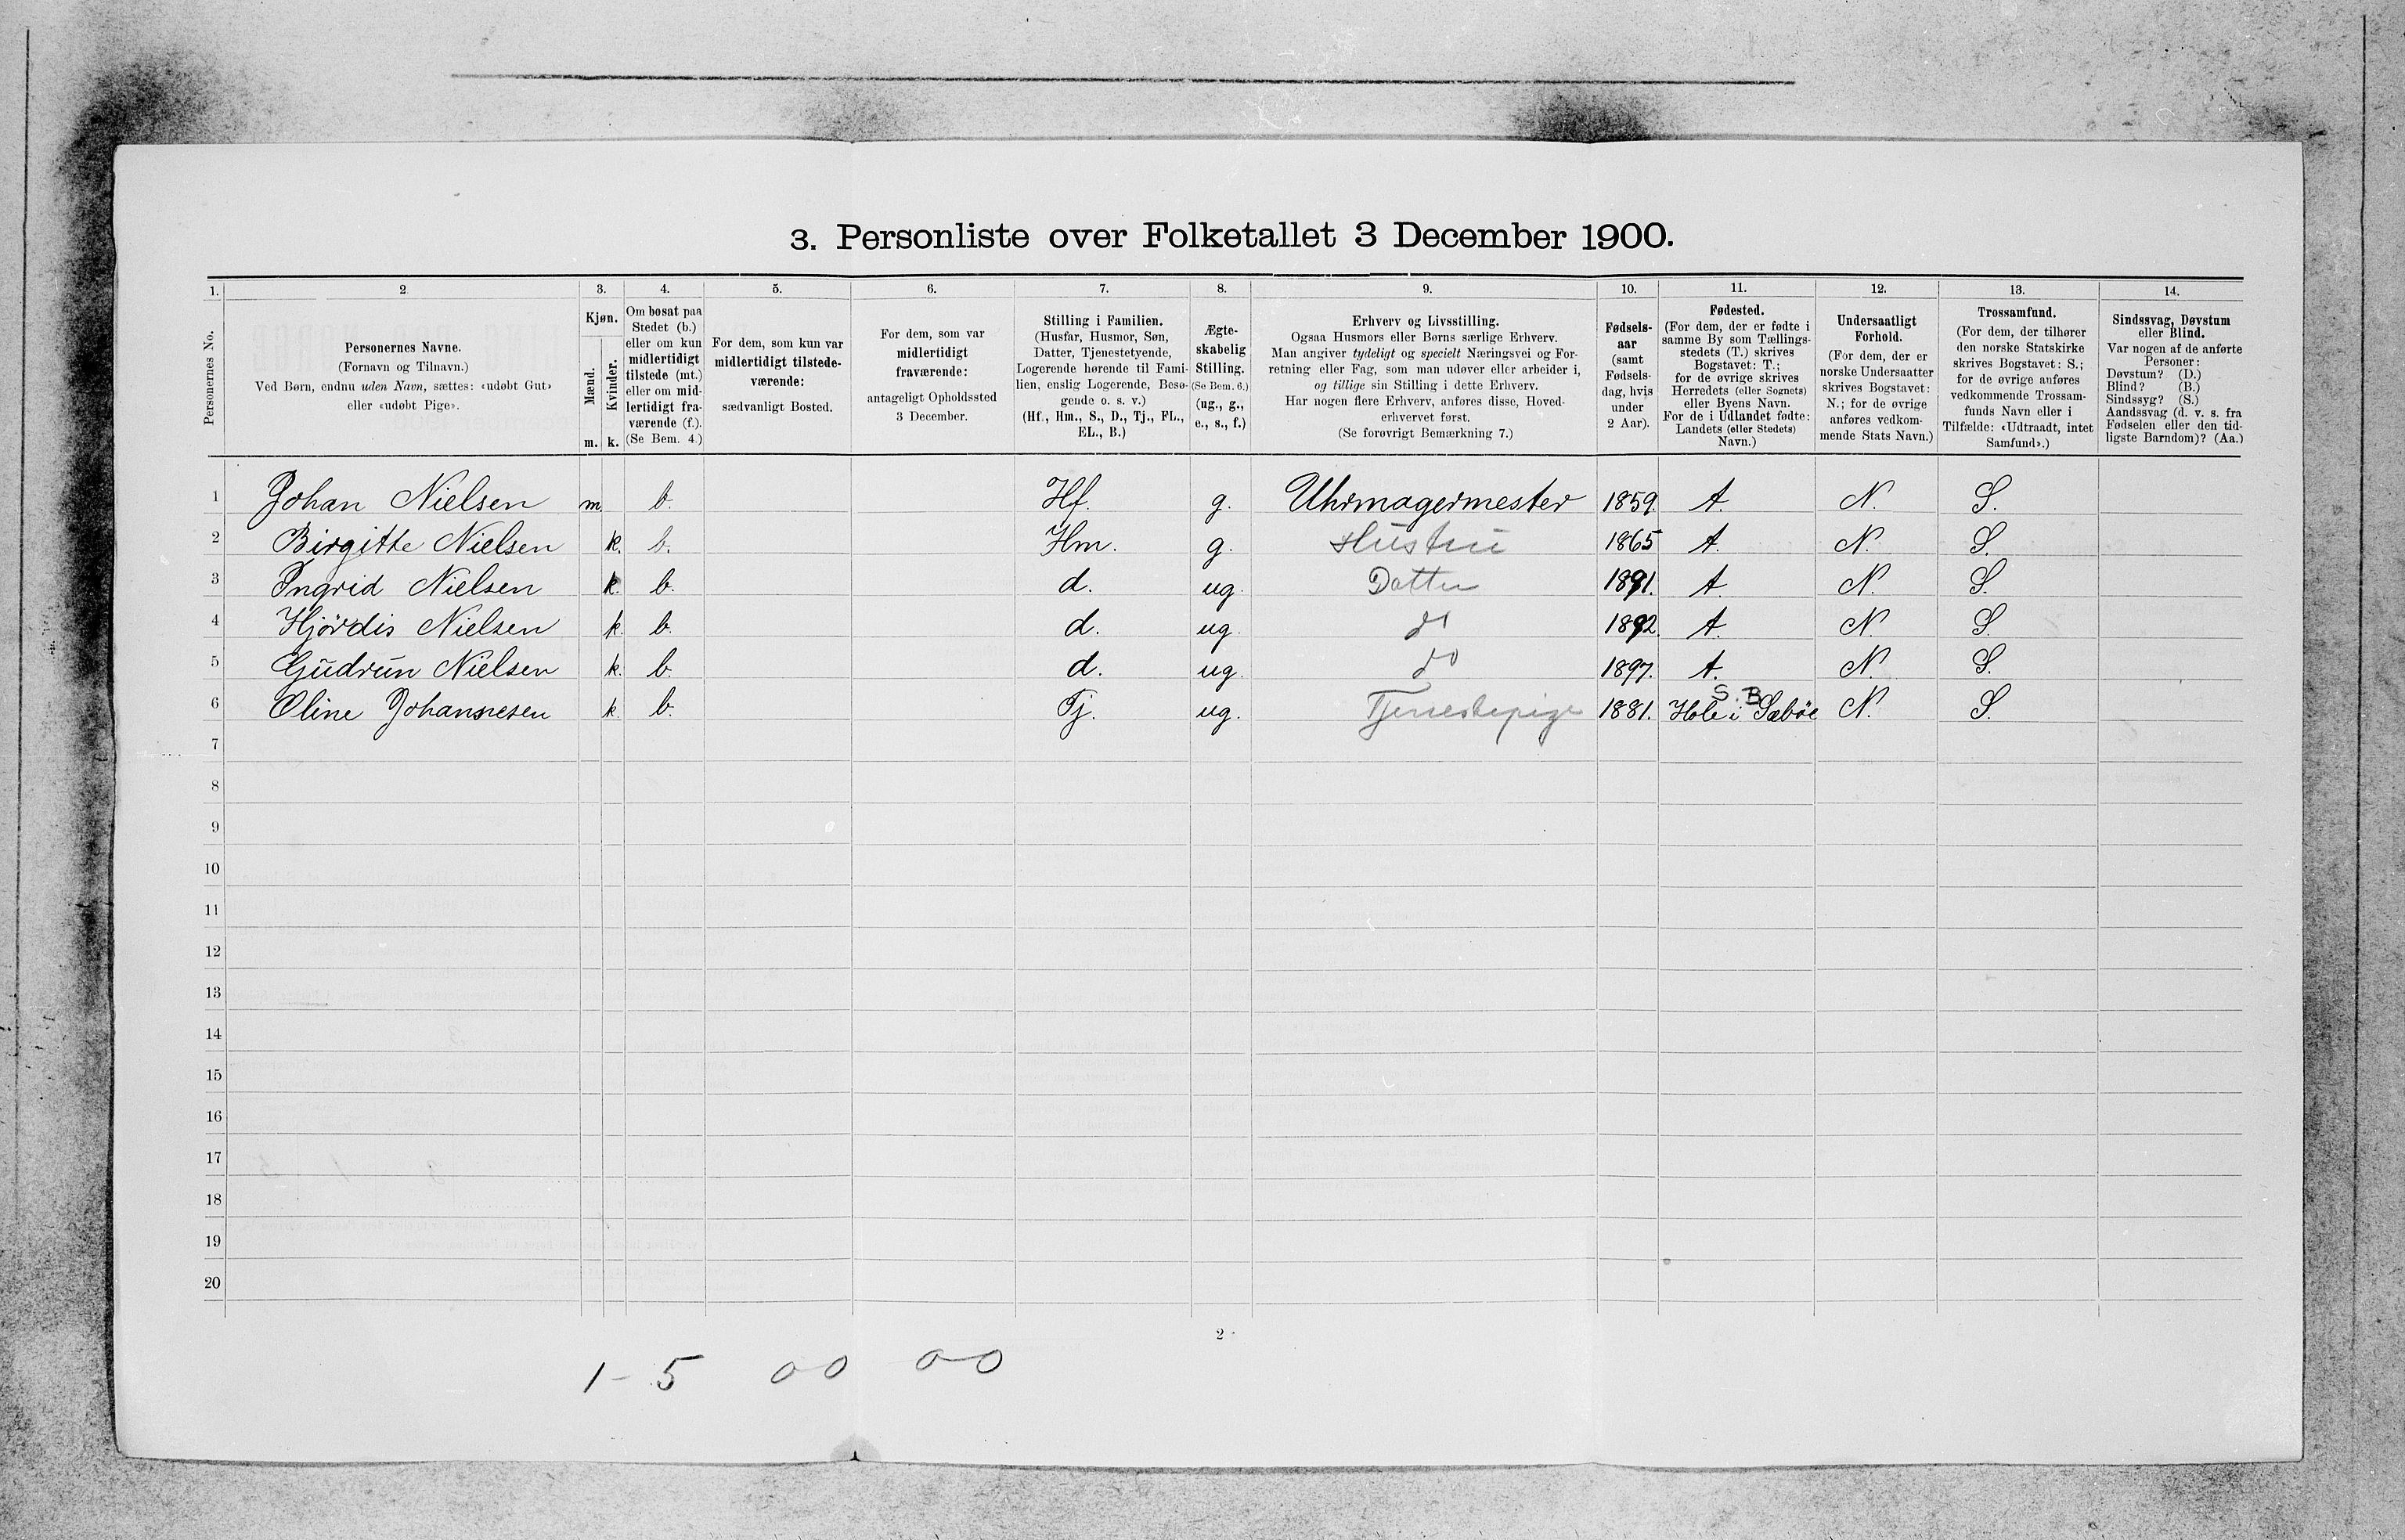 3. Personliste over Folketallet 3 December 1900.
1. 2 3. 4. 5. 6. 7. 8. 9. 10. 11. 12. 13. 14.
Personernes No.
Personernes Navne.
(Fornavn og Tilnavn.)
Ved Børn, endnu uden Navn, sættes: «udøbt Gut»
eller «udøbt Pige».
Kjøn.
Mænd.
Kvinder.
m. k.
Om bosat paa
Stedet (b.)
eller om kun
midlertidigt
tilstede (mt.)
eller om mid-
lertidigt fra-
værende (f.).
(Se Bem. 4.)
For dem, som kun var
midlertidigt tilstede-
værende:
sædvanligt Bosted.
For dem, som var
midlertidigt
fraværende:
antageligt Opholdssted
3 December.
Stilling i Familien.
(Husfar, Husmor, Søn,
Datter, Tjenestetyende,
Logerende hørende til Fami-
lien, enslig Logerende, Besø-
gende o. s. v.)
(Hf., Hm., S., D., Tj., FL.,
EL., B.)
Ægte-
skabelig
Stilling.
(Se Bem. 6.)
(ug., g.,
e., s., f.)
Erhverv og Livsstilling.
Ogsaa Husmors eller Børns særlige Erhverv.
Man angiver tydeligt og specielt Næringsvei og For-
retning eller Fag, som man udøver eller arbeider i,
og tillige sin Stilling i dette Erhverv.
Har nogen flere Erhverv, anføres disse, Hoved-
erhvervet først.
(Se forøvrigt Bemærkning 7.)
Fødsels-
aar
(samt
Fødsels-
dag, hvis
under
2 Aar).
Fødested.
(For dem, der er fødte i
samme By som Tællings-
stedets (T.) skrives
Bogstavet: T.;
for de øvrige skrives
Herredets (eller Sognets)
eller Byens Navn.
For de i Udlandet fødte:
Landets (eller Stedets)
Navn.)
Undersaatligt
Forhold.
(For dem, der er
norske Undersaatter
skrives Bogstavet:
N.; for de øvrige
anføres vedkom-
mende Stats Navn.)
Trossamfund.
(For dem, der tilhører
den norske Statskirke
skrives Bogstavet: S.;
for de øvrige anføres
vedkommende Trossam-
funds Navn eller i
Tilfælde: «Udtraadt, intet
Samfund».)
Sindssvag, Døvstum
eller Blind.
Var nogen af de anførte
Personer:
Døvstum? (D.)
Blind? (B.)
Sindssyg? (S.)
Aandssvag (d. v. s. fra
Fødselen eller den tid-
ligste Barndom)? (Aa.)
1 Johan Nielsen m. b. Hf. g. Uhrmagermester 1859. A. N. S.
2 Birgitte Nielsen k. b. Hm. g. Hustru 1865 A. N. S.
3 Ingrid Nielsen k. b. d. ug. Datter 1891. A. N. S.
4 Hjördis Nielsen k. b. d. ug. do 1892. A. N. S.
5 Gudrun Nielsen k. b. d. ug. do 1897. A. N. S.
S. B
6 Oline Johannesen k. b. Tj. ug. Tjenestepige 1881. Hole i Sæböe N. S.
7
8
9
10
11
12
13
14
15
16
17
18
19
20
2
1 - 5 00 00